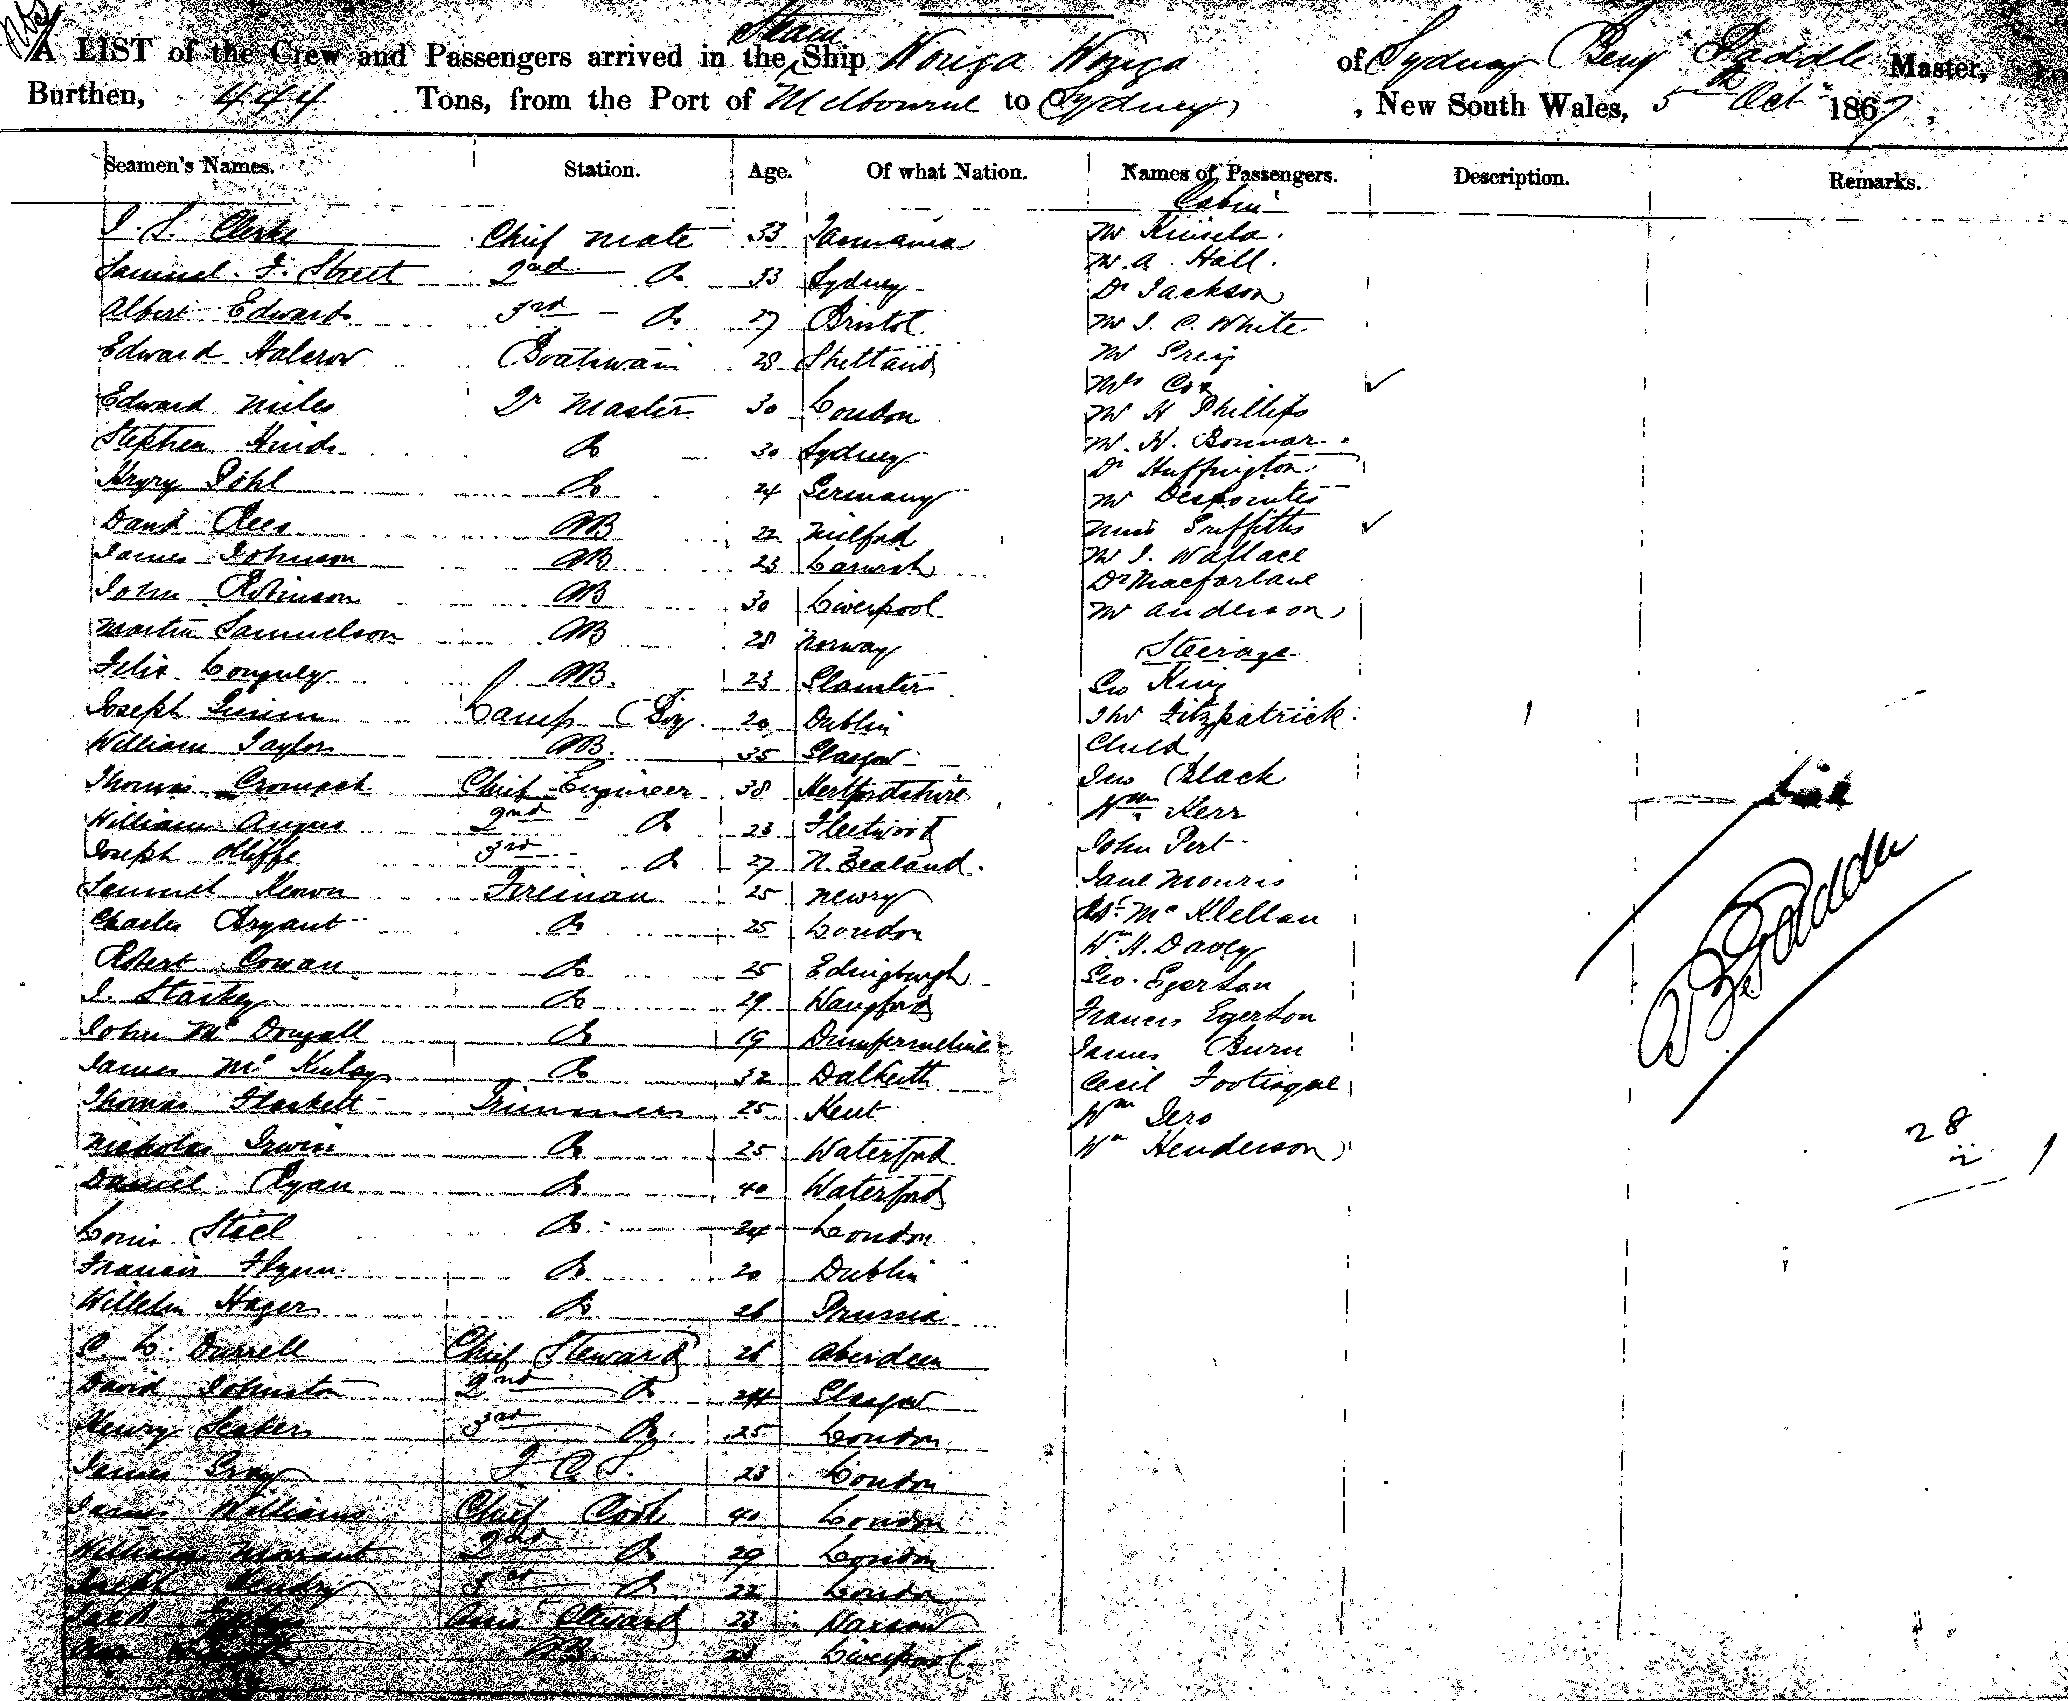 A LIST of the Crew and Passengers arrived in the Steam Ship Wonga Wonga of Sydney Benj Paddle Master,
Burthen, 444 Tons, from the Port of Melbourne to Sydney, New South Wales, 5th Oct 1867
Seamen's Names. Station. Age. Of what Nation. Names of Passengers. Description. Remarks.
Cabin
J. S. Clarke Chief Mate 33 Tasmania Mr Kinsela
Samuel F. Street 2nd Do 33 Sydney M. A. Hall
Dr Jackson
Albert Edwards 3rd Do 27 Bristol Mr J. C. White
Edward Halcrow Boatswain 28 Shetland Mr Greig
Mrs Cox
Edward Miles Qr Master 30 London Mr H Phillips
Stephen Hinds Do 30 Sydney M. W. Bonnar
Dr Huffington
Pöhl Do 24 Germany Mr Despointes
David Rees AB 22 Milford Miss Griffiths
James Johnson AB 23 Mr J. Wallace
Dr Macfarlane
John Robinson AB 30 Liverpool Mr Anderson
Martin Samuelson AB 28 Norway Steerage
Felix AB 23 Geo King
Joseph Lamp Boy 20 Dublin Thos Fitzpatrick
William Taylor AB 35 Glasgow Child
Thomas Chief Engineer 38 Hertfordshire Jno Black
Wm Kerr
William Angus 2nd Do 23 Fleetwood John Pert
Joseph Olliffe 3rd Do 27 N. Zealand
Samuel Keown Fireman 25 Newry Jane Morris
Charles Bryant Do 25 London McKlellan
Robert Cowan Do 25 Edingburgh Wm H. Davey
Geo. Egerton
J. Starkey Do 29 Wangford Francis Egerton
John McDougall Do 19 Dumfermeline James Burn
James McKinlay Do 32 Dalkeith Cecil
Thomas Flaskett Trimmer 25 Kent Wm
Nicholas Irwin Do 25 Waterford Wm Henderson
28
2
Daniel Ryan Do 40 Waterford
Louis Steel Do 24 London
Francis Flynn Do 20 Dublin
Wilhelm Hager Do 26 Prussia
C. L. Durrell Chief Steward 26 Aberdeen
David Johnston 2nd Do 24 Glasgow
Henry Seakers 3rd Do 25 London
James Gray F. C. S. 23 London
James Williams Chief Cook 40 London
William Morrant 2nd Do 29 London
Joseph Hendry 3rd Do 22 London
Fred Steward 23
AB 28 Liverpool